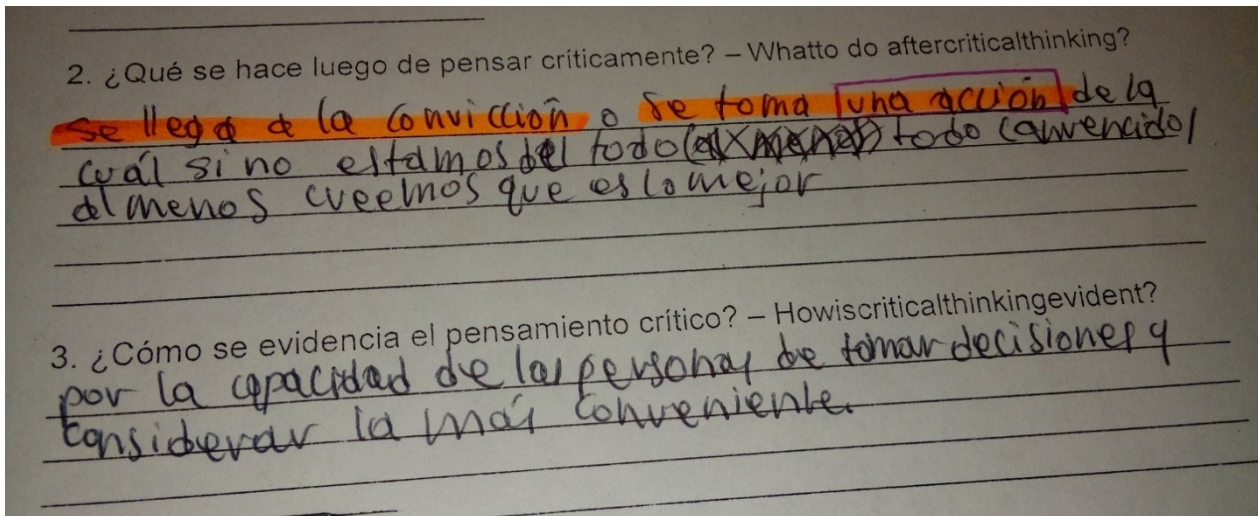 2. ¿Qué se hace luego de pensar críticamente? – Whatto do aftercriticalthinking?
se llega a la convicción o se toma una acción de la
cuál si no estamos del todo todo convencidos
al menos creemos que es lo mejor
3. ¿Cómo se evidencia el pensamiento crítico? – Howiscriticalthinkingevident?
por la capacidad de las personas de tomar decisiones y
considerar la más conveniente.